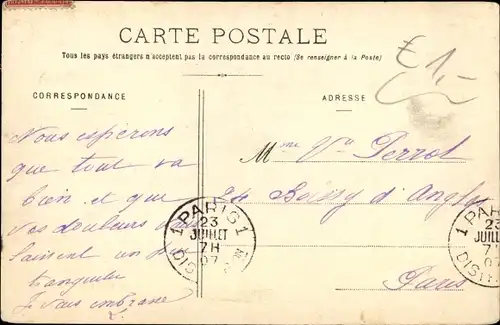 CARTE POSTALE
Tous les pays étrangers n'acceptent pas la correspondance au recto (Se renseigner à la Poste)
€1,-
CORRESPONDANCE
ADRESSE
Nous espérons
que tout va
bien et que
vos douleurs vous
laissent un peu
tranquille
Je vous embrasse
L.
Mme Vve Perrot
24 Boissy d'Anglas
Paris
1 PARIS 1
23
JUILLET
7H
07
DIST
1 PAR
23
JUILL
7
07
DISTR